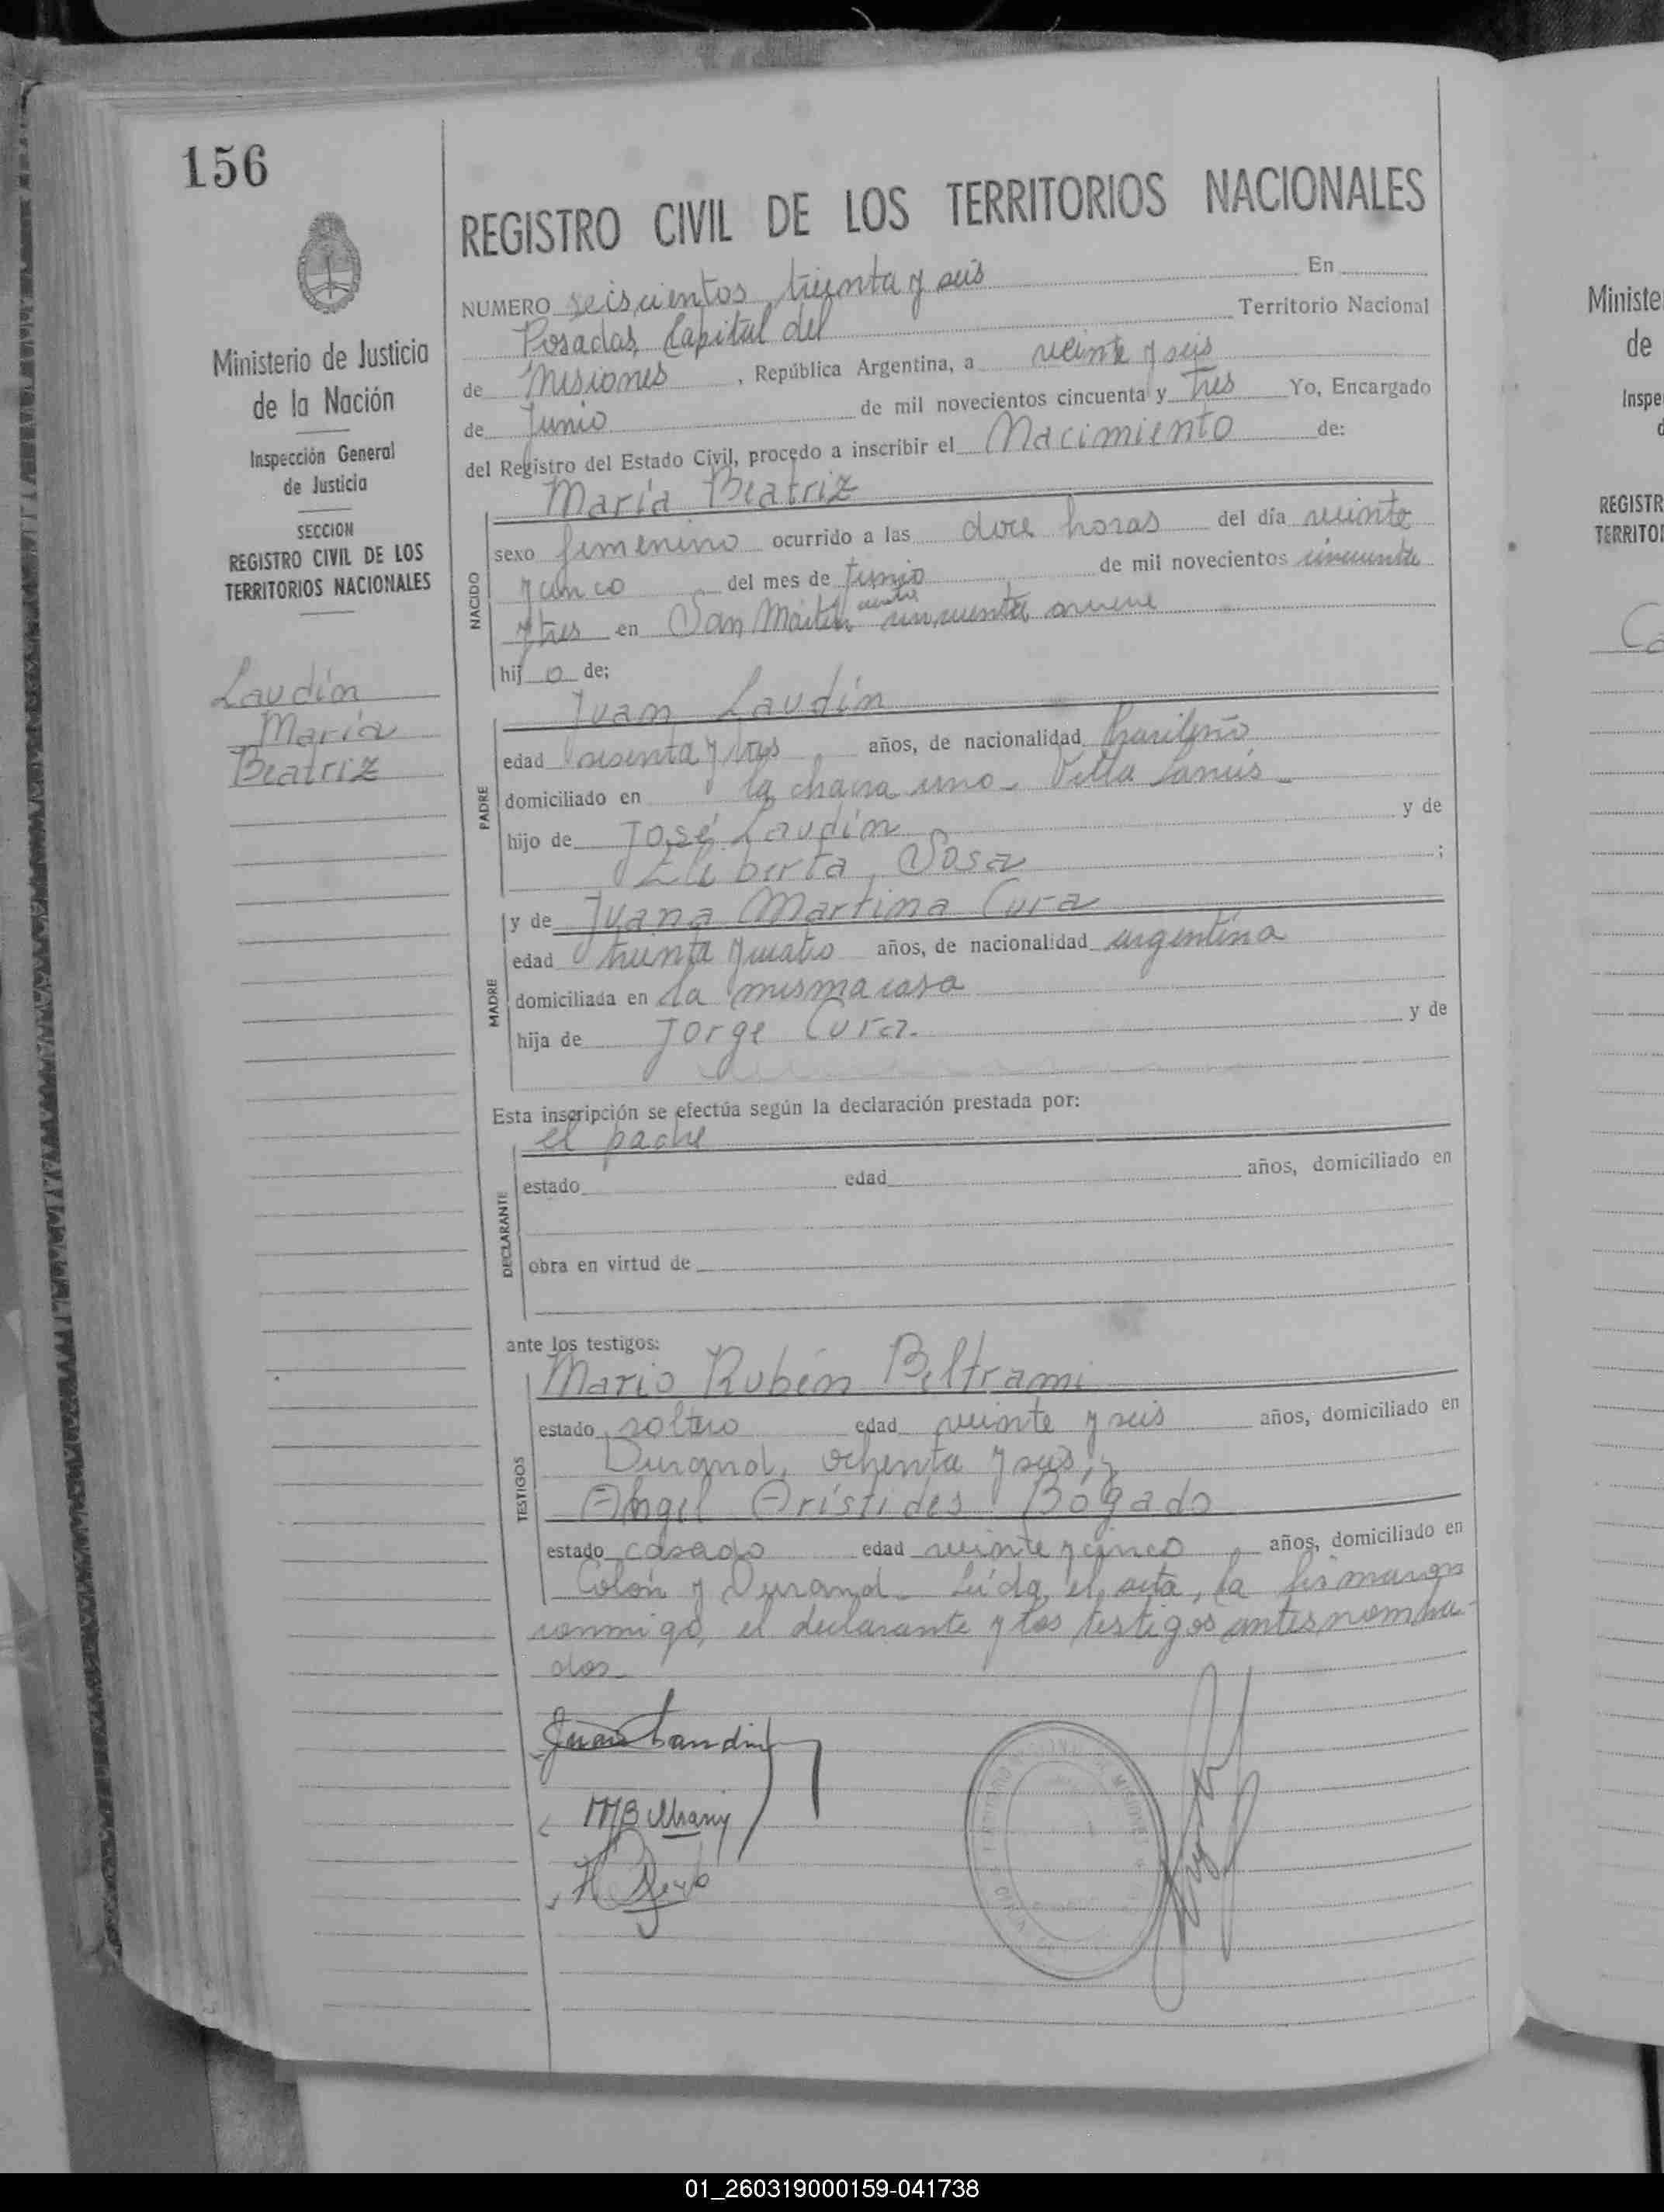 156
Ministerio de Justicia
de la Nación
Inspección General
de Justicia
SECCION
REGISTRO CIVIL DE LOS
TERRITORIOS NACIONALES
Laudín
María
Beatriz
REGISTRO CIVIL DE LOS TERRITORIOS NACIONALES
NUMERO seiscientos treinta y seis En
Posadas, Capital del Territorio Nacional
de Misiones, República Argentina, a veinte y seis
de Junio de mil novecientos cincuenta y tres Yo, Encargado
del Registro del Estado Civil, procedo a inscribir el Nacimiento de:
María Beatriz
NACIDO
sexo femenino ocurrido a las doce horas del día veinte
y cinco del mes de Junio de mil novecientos cincuenta
y tres en San Martín cincuenta
hij a de;
Juan Laudín
PADRE
edad sesenta y tres años, de nacionalidad brasileño
domiciliado en la chacra uno - Villa Lanús -
hijo de José Laudín y de
Eliberta Sosa ;
y de Juana Martina Cura
MADRE
edad treinta y cuatro años, de nacionalidad argentina
domiciliada en la misma casa
hija de Jorge Cura. y de
Esta inscripción se efectúa según la declaración prestada por:
el padre
DECLARANTE
estado edad años, domiciliado en
obra en virtud de
ante los testigos:
Mario Rubén Beltrami
TESTIGOS
estado soltero edad veinte y seis años, domiciliado en
Durand, ochenta y seis, y
Angel Arístides Bogado
estado casado edad veinte y cinco años, domiciliado en
Colón y Durand. Leída el acta, la firmaron
conmigo, el declarante y los testigos antes nombra-
dos.
Juan Laudin
Ministe
de
Inspe
d
REGISTR
TERRITOR
Ca
01_260319000159-041738